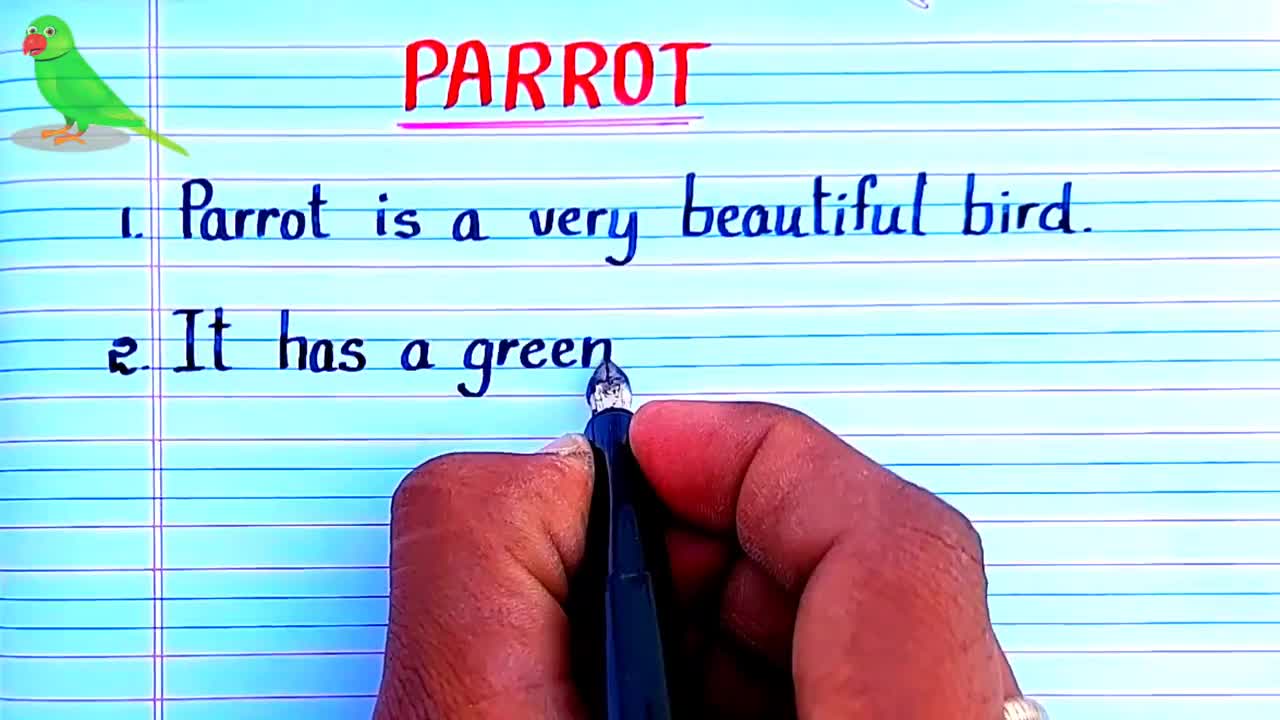 PARROT
1. Parrot is a very beautiful bird.
2. It has a green